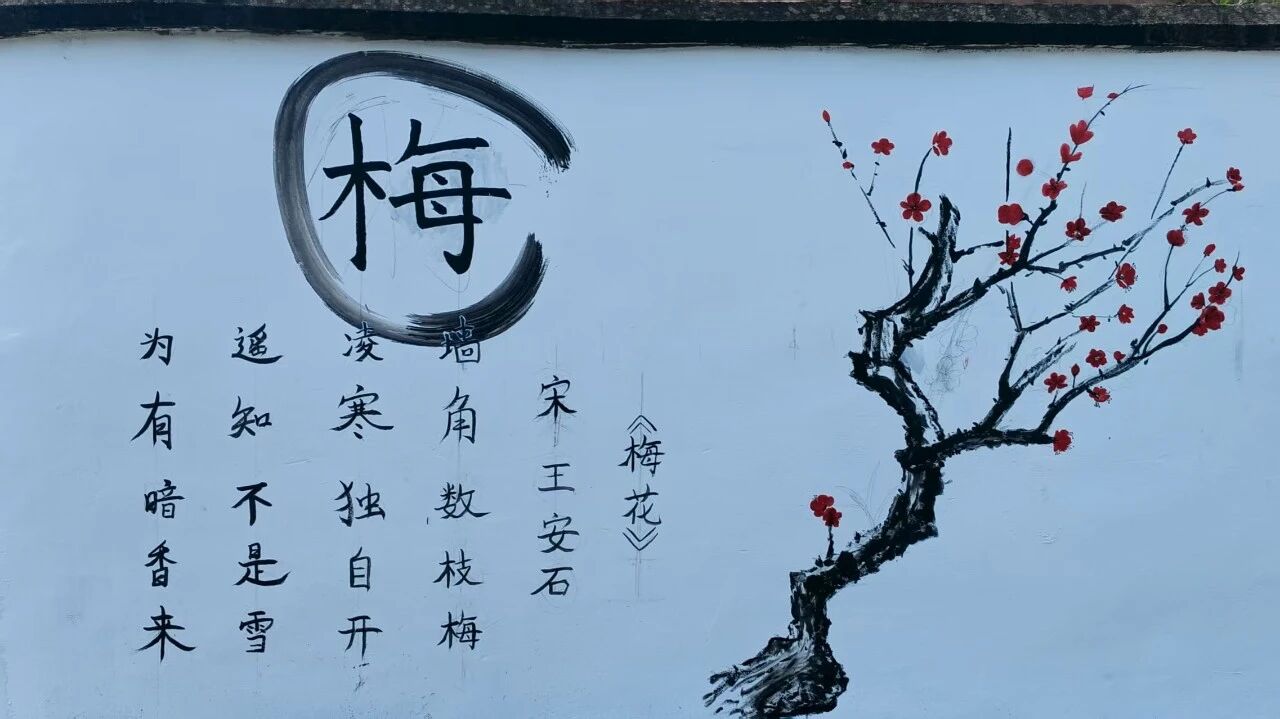 梅
《梅花》
宋 王安石
墙角数枝梅
凌寒独自开
遥知不是雪
为有暗香来